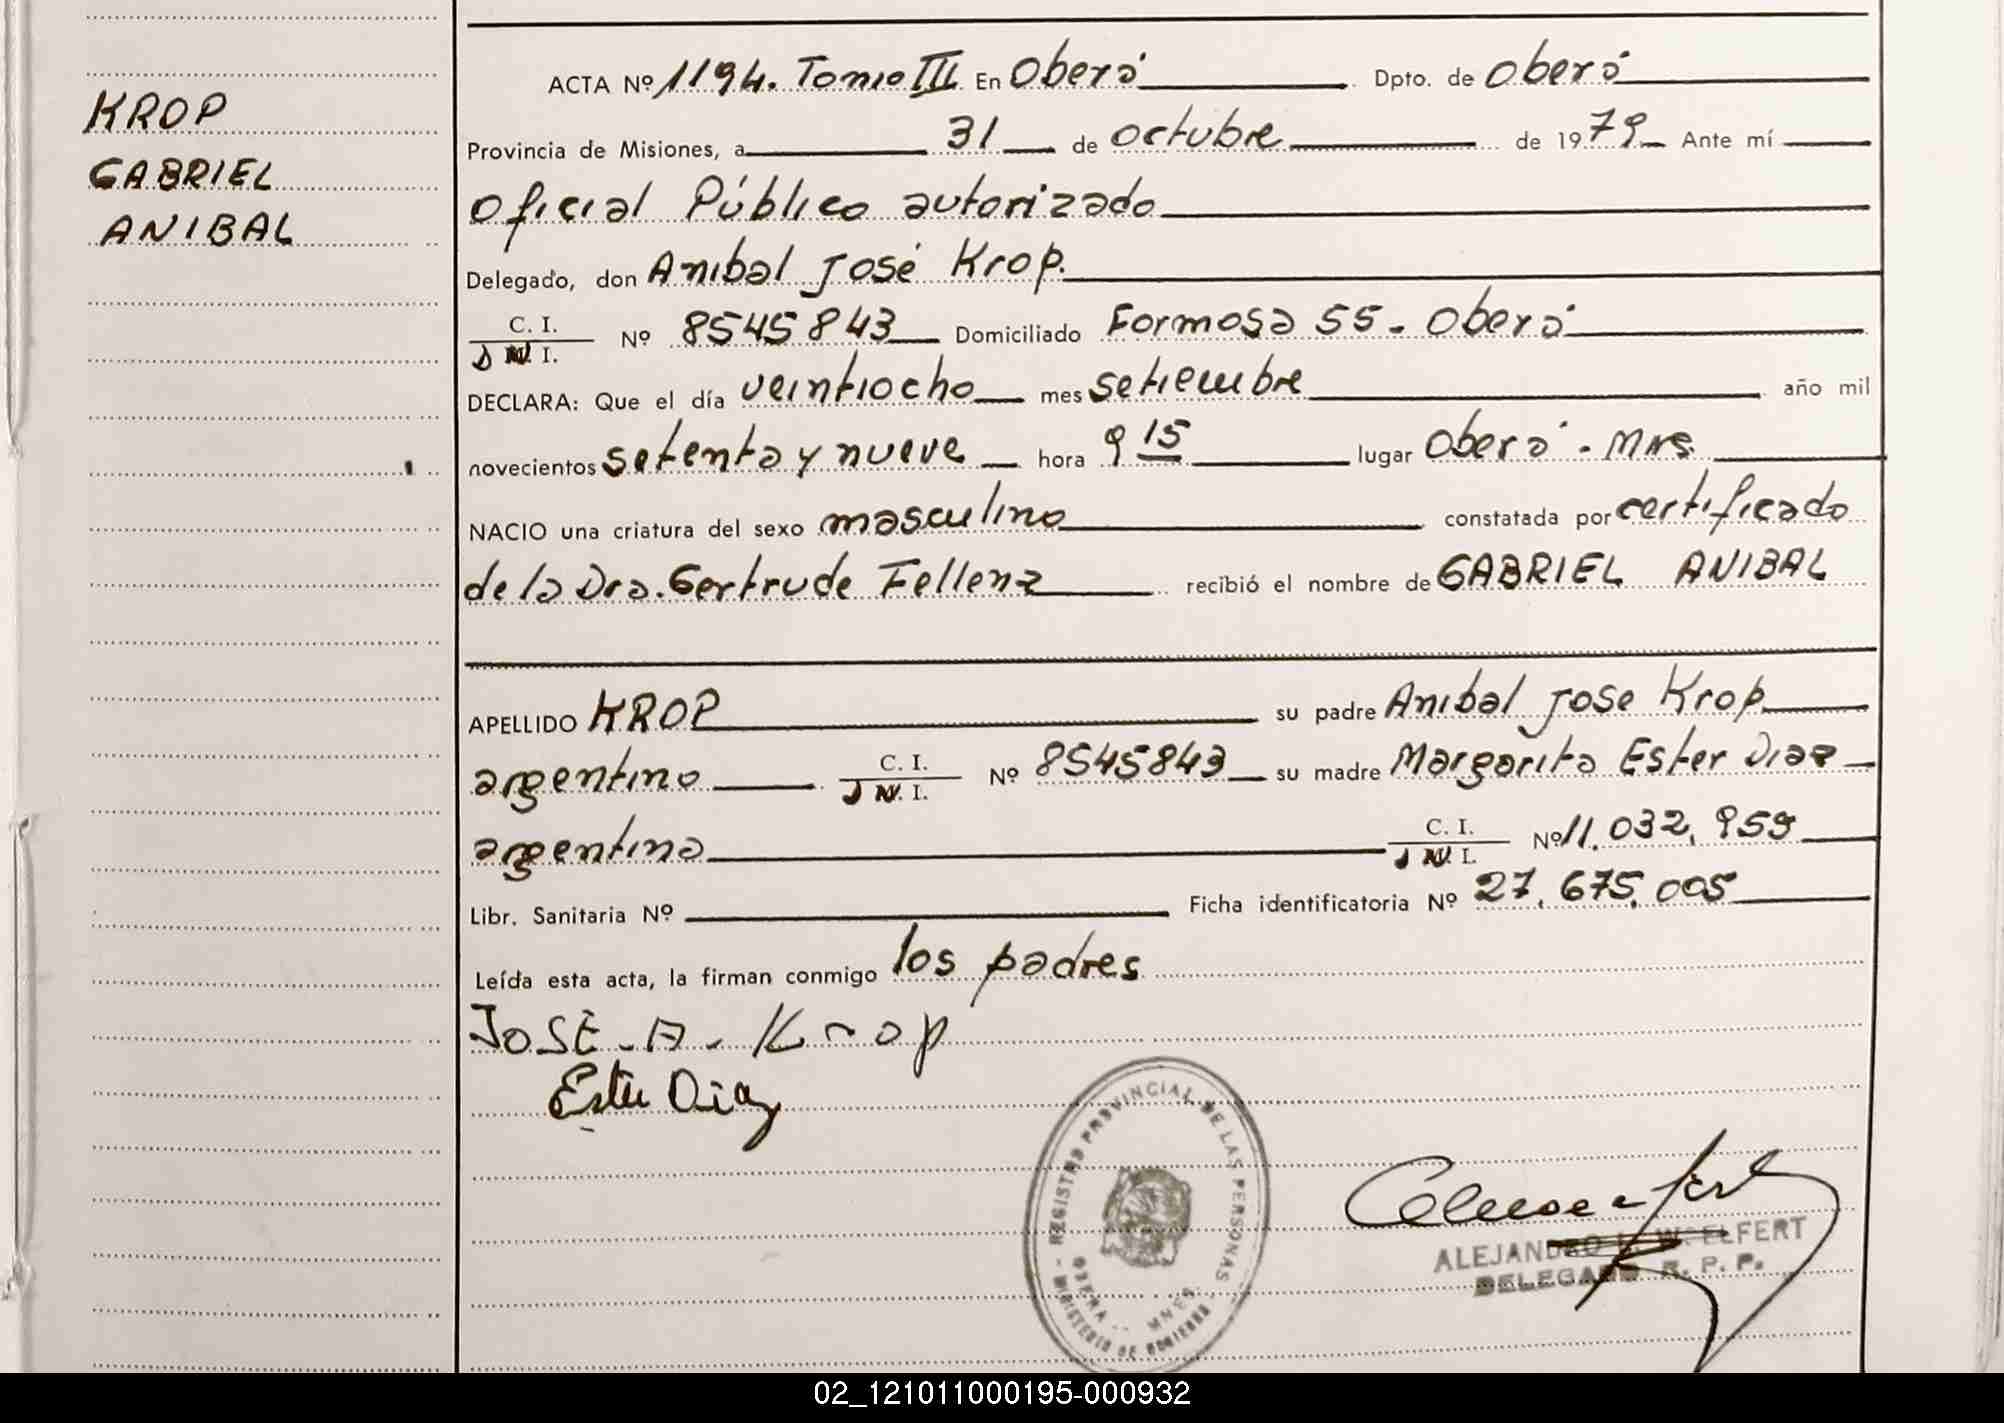 KROP
GABRIEL
ANIBAL
ACTA Nº 1194. Tomo III En Oberá Dpto. de Oberá
Provincia de Misiones, a 31 de octubre de 1979 Ante mí
Oficial Público autorizado
Delegado, don Anibal José Krop.
C. I.
D N. I. Nº 8545843 Domiciliado Formosa 55 - Oberá
DECLARA: Que el día veintiocho mes setiembre año mil
novecientos setenta y nueve hora 9 15 lugar Oberá - Mns.
NACIO una criatura del sexo masculino constatada por certificado
de la Dra. Gertrude Fellenz recibió el nombre de GABRIEL ANIBAL
APELLIDO KROP su padre Anibal Jose Krop
argentino C. I. D N. I. Nº 8545843 su madre Margarita Ester Diaz
argentina C. I. D N. I. Nº 11.032.959
Libr. Sanitaria Nº Ficha identificatoria Nº 27.675.005
Leída esta acta, la firman conmigo los padres
JOSÉ - A - Krop
Ester Diaz
REGISTRO PROVINCIAL DE LAS PERSONAS
OBERA - MNES.
- MINISTERIO DE GOBIERNO -
ALEJANDRO W. ELFERT
DELEGADO R. P. P.
02_121011000195-000932